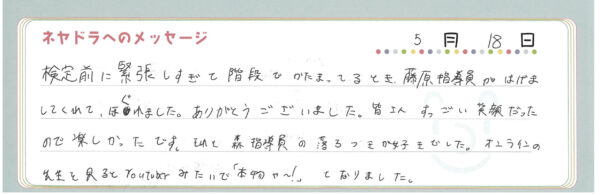 ネヤドラへのメッセージ
5月18日
検定前に緊張しすぎて階段でかたまってるとき、藤原指導員がはげま
してくれて、ほぐれました。ありがとうございました。皆さん すっごい笑顔だった
ので楽しかったです。それと森指導員の落ちつきが好きでした。オンラインの
先生を見るとYoutuberみたいで「本物や〜!」となりました。